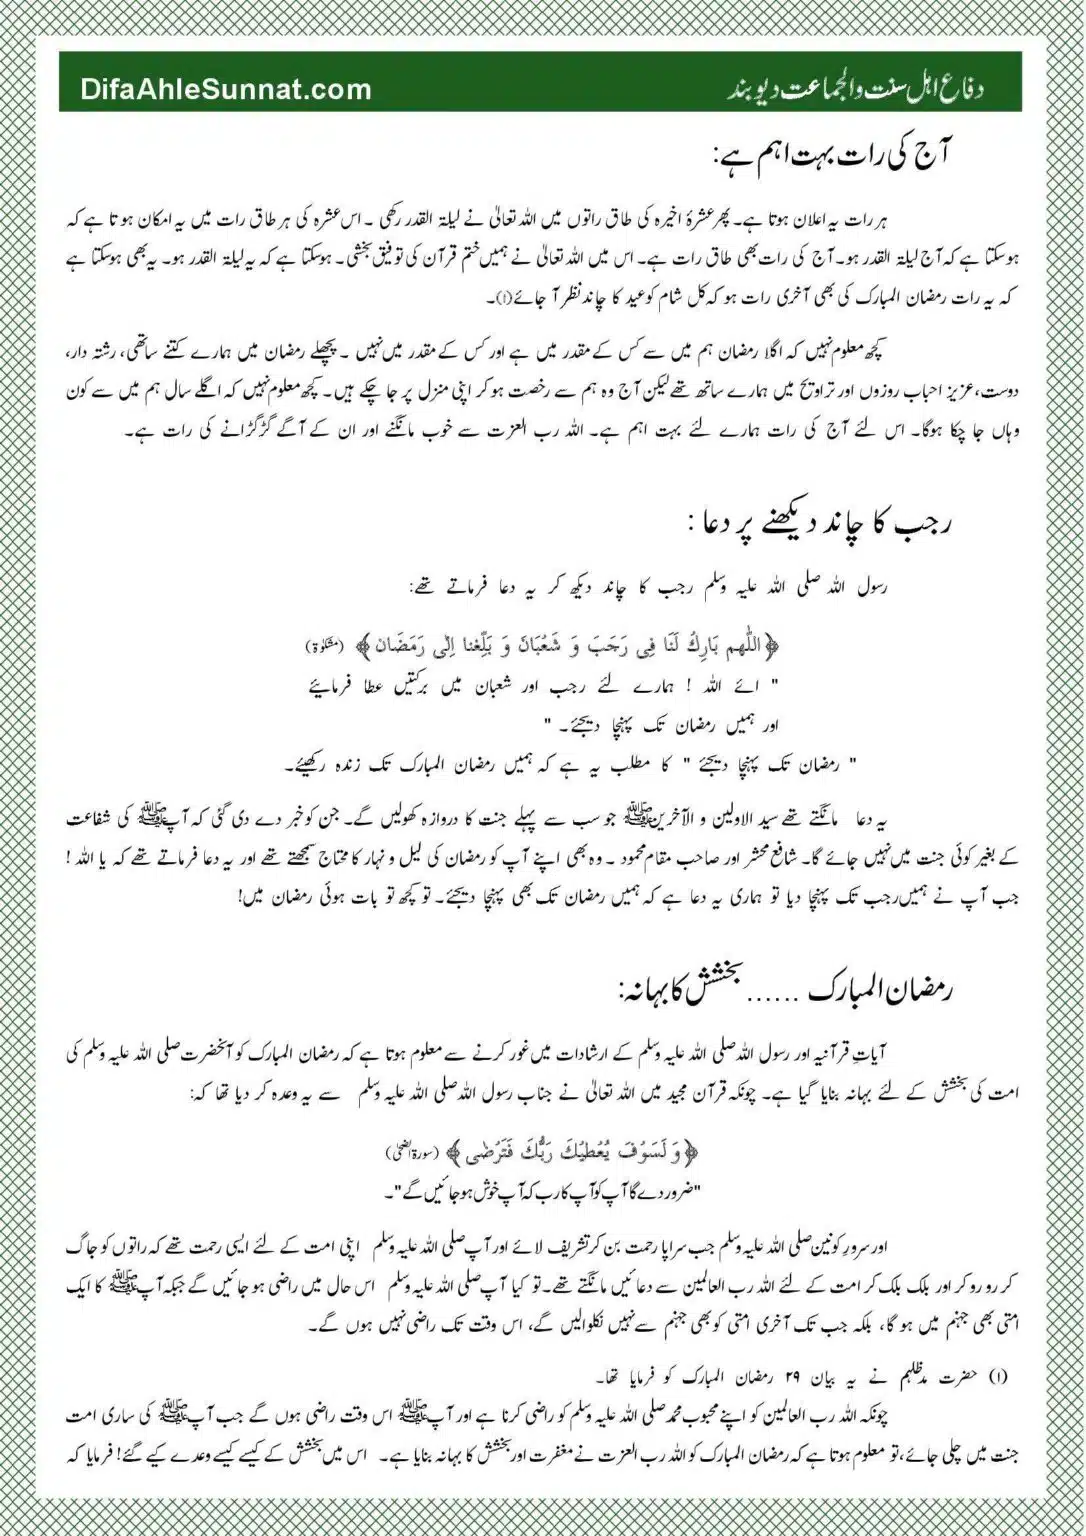 DifaAhleSunnat.com
دفاع اہل سنت والجماعت دیوبند
آج کی رات بہت اہم ہے:
ہر رات یہ اعلان ہوتا ہے۔ پھر عشرۂ اخیرہ کی طاق راتوں میں اللہ تعالیٰ نے لیلۃ القدر رکھی ۔ اس عشرہ کی ہر طاق رات میں یہ امکان ہوتا ہے کہ
ہوسکتا ہے کہ آج لیلۃ القدر ہو۔ آج کی رات بھی طاق رات ہے۔ اس میں اللہ تعالیٰ نے ہمیں ختم قرآن کی توفیق بخشی۔ ہوسکتا ہے کہ یہ لیلۃ القدر ہو۔ یہ بھی ہوسکتا ہے
کہ یہ رات رمضان المبارک کی بھی آخری رات ہو کہ کل شام کو عید کا چاند نظر آ جائے(۱)۔
کچھ معلوم نہیں کہ اگلا رمضان ہم میں سے کس کے مقدر میں ہے اور کس کے مقدر میں نہیں ۔ پچھلے رمضان میں ہمارے کتنے ساتھی، رشتہ دار،
دوست، عزیز احباب روزوں اور تراویح میں ہمارے ساتھ تھے لیکن آج وہ ہم سے رخصت ہو کر اپنی منزل پر جا چکے ہیں۔ کچھ معلوم نہیں کہ اگلے سال ہم میں سے کون
وہاں جا چکا ہوگا۔ اس لئے آج کی رات ہمارے لئے بہت اہم ہے۔ اللہ رب العزت سے خوب مانگنے اور ان کے آگے گڑگڑانے کی رات ہے۔
رجب کا چاند دیکھنے پر دعا :
رسول اللہ صلی اللہ علیہ وسلم رجب کا چاند دیکھ کر یہ دعا فرماتے تھے:
﴿اللّٰهم بَارِكْ لَنَا فِی رَجَبَ وَ شَعْبَانَ وَ بَلِّغْنا اِلٰی رَمَضَانَ﴾ (مشکوٰۃ)
" ائے اللہ ! ہمارے لئے رجب اور شعبان میں برکتیں عطا فرمائیے
اور ہمیں رمضان تک پہنچا دیجئے۔ "
" رمضان تک پہنچا دیجئے " کا مطلب یہ ہے کہ ہمیں رمضان المبارک تک زندہ رکھیئے۔
یہ دعا مانگتے تھے سید الاولین و الآخرین ﷺ جو سب سے پہلے جنت کا دروازہ کھولیں گے۔ جن کو خبر دے دی گئی کہ آپ ﷺ کی شفاعت
کے بغیر کوئی جنت میں نہیں جائے گا۔ شافع محشر اور صاحب مقام محمود ۔ وہ بھی اپنے آپ کو رمضان کی لیل و نہار کا محتاج سمجھتے تھے اور یہ دعا فرماتے تھے کہ یا اللہ !
جب آپ نے ہمیں رجب تک پہنچا دیا تو ہماری یہ دعا ہے کہ ہمیں رمضان تک بھی پہنچا دیجئے۔ تو کچھ تو بات ہوئی رمضان میں!
رمضان المبارک ...... بخشش کا بہانہ:
آیاتِ قرآنیہ اور رسول اللہ صلی اللہ علیہ وسلم کے ارشادات میں غور کرنے سے معلوم ہوتا ہے کہ رمضان المبارک کو آنحضرت صلی اللہ علیہ وسلم کی
امت کی بخشش کے لئے بہانہ بنایا گیا ہے۔ چونکہ قرآن مجید میں اللہ تعالیٰ نے جناب رسول اللہ صلی اللہ علیہ وسلم سے یہ وعدہ کر دیا تھا کہ:
﴿وَ لَسَوْفَ یُعْطِیْكَ رَبُّكَ فَتَرْضٰی﴾ (سورۃ الضحیٰ)
"ضرور دے گا آپ کو آپ کا رب کہ آپ خوش ہو جائیں گے"۔
اور سرورِ کونین صلی اللہ علیہ وسلم جب سراپا رحمت بن کر تشریف لائے اور آپ صلی اللہ علیہ وسلم اپنی امت کے لئے ایسی رحمت تھے کہ راتوں کو جاگ
کر رو رو کر اور بلک بلک کر امت کے لئے اللہ رب العالمین سے دعائیں مانگتے تھے۔ تو کیا آپ صلی اللہ علیہ وسلم اس حال میں راضی ہو جائیں گے جبکہ آپ ﷺ کا ایک
امتی بھی جہنم میں ہو گا، بلکہ جب تک آخری امتی کو بھی جہنم سے نہیں نکلوالیں گے، اس وقت تک راضی نہیں ہوں گے۔
(۱) حضرت مدظلہم نے یہ بیان ۲۹ رمضان المبارک کو فرمایا تھا۔
چونکہ اللہ رب العالمین کو اپنے محبوب محمد صلی اللہ علیہ وسلم کو راضی کرنا ہے اور آپ ﷺ اس وقت راضی ہوں گے جب آپ ﷺ کی ساری امت
جنت میں چلی جائے، تو معلوم ہوتا ہے کہ رمضان المبارک کو اللہ رب العزت نے مغفرت اور بخشش کا بہانہ بنایا ہے۔ اس میں بخشش کے کیسے کیسے وعدے کیے گئے! فرمایا کہ